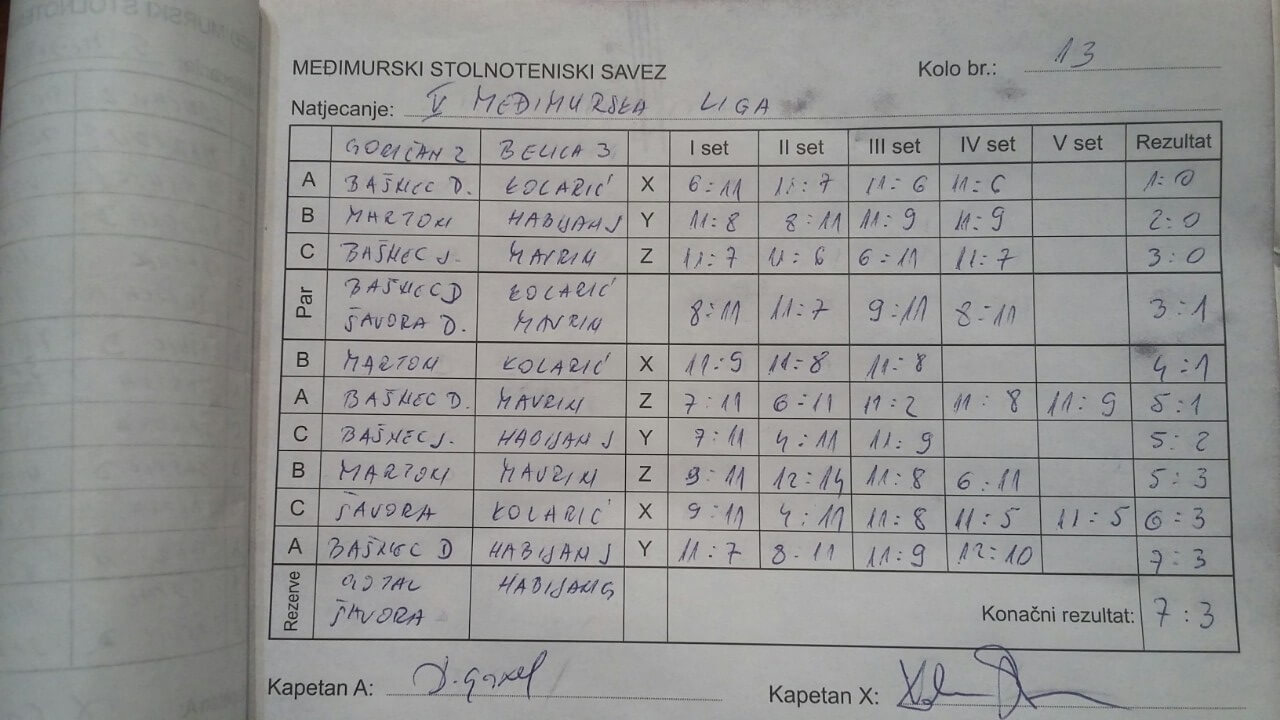 MEĐIMURSKI STOLNOTENISKI SAVEZ
Kolo br.: 13
Natjecanje: V MEĐIMURSKA LIGA
GORIČAN 2 BELICA 3 I set II set III set IV set V set Rezultat
A BAŠNEC D. KOLARIĆ X 6:11 11:7 11:6 11:6 1:0
B MARTON HABIJAN J Y 11:8 8:11 11:9 11:9 2:0
C BAŠNEC J. MAVRIN Z 11:7 11:6 6:11 11:7 3:0
Par BAŠNEC D KOLARIĆ 8:11 11:7 9:11 8:11 3:1
ŠAVORA D. MAVRIN
B MARTON KOLARIĆ X 11:9 11:8 11:8 4:1
A BAŠNEC D. MAVRIN Z 7:11 6:11 11:2 11:8 11:9 5:1
C BAŠNEC J. HABIJAN J Y 7:11 4:11 11:9 5:2
B MARTON MAVRIN Z 9:11 12:14 11:8 6:11 5:3
C ŠAVORA KOLARIĆ X 9:11 4:11 11:8 11:5 11:5 6:3
A BAŠNEC D HABIJAN J Y 11:7 8:11 11:9 12:10 7:3
Rezerve HABIJAN G
ŠAVORA Konačni rezultat: 7:3
Kapetan A:
Kapetan X: